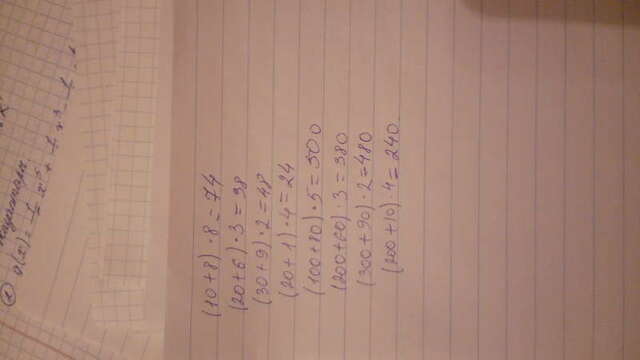 ①
g(x) =
(10+8) · 8 = 74
(20+6) · 3 = 38
(30+9) · 2 = 48
(20+1) · 4 = 24
(100+80) · 5 = 500
(200+60) · 3 = 380
(300+90) · 2 = 480
(200+10) · 4 = 240.